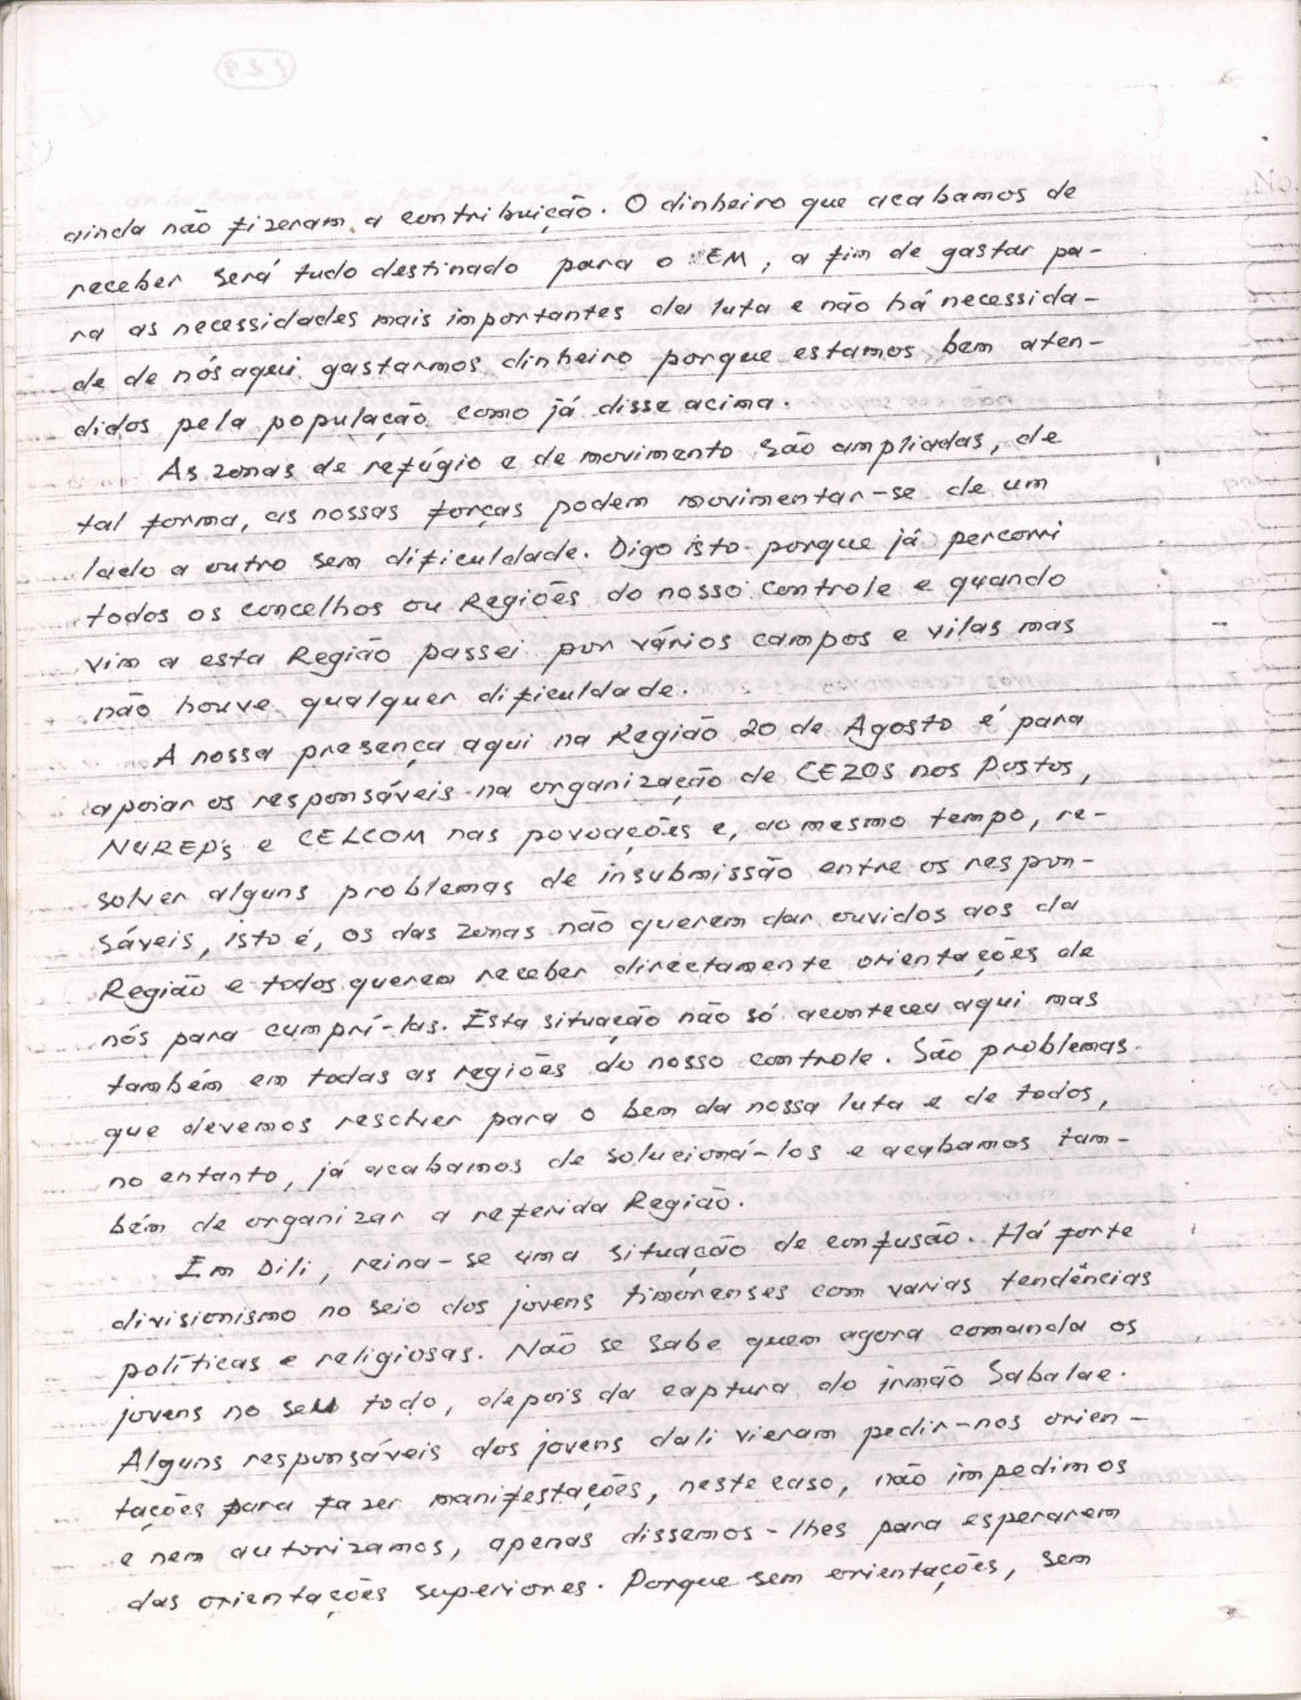 ainda não fizeram a contribuição. O dinheiro que acabamos de
receber será tudo destinado para o EM, a fim de gastar pa-
ra as necessidades mais importantes da luta e não há necessida-
de de nós aqui gastarmos dinheiro porque estamos bem aten-
didos pela população como já disse acima.
As zonas de refúgio e de movimento são ampliadas, de
tal forma, as nossas forças podem movimentar-se de um
lado a outro sem dificuldade. Digo isto porque já percorri
todos os concelhos ou Regiões do nosso controle e quando
vim a esta Região passei por vários campos e vilas mas
não houve qualquer dificuldade.
A nossa presença aqui na Região 20 de Agosto é para
apoiar os responsáveis na organização de CEZOS nos Postos,
NUREP's e CELCOM nas povoações e, ao mesmo tempo, re-
solver alguns problemas de insubmissão entre os respon-
sáveis, isto é, os das zonas não querem dar ouvidos aos da
Região e todos querem receber directamente orientações de
nós para cumprí-las. Esta situação não só aconteceu aqui mas
também em todas as regiões do nosso controle. São problemas
que devemos resolver para o bem da nossa luta e de todos,
no entanto, já acabamos de solucioná-los e acabamos tam-
bém de organizar a referida Região.
Em Dili, reina-se uma situação de confusão. Há forte
divisionismo no seio dos jovens timorenses com varias tendências
políticas e religiosas. Não se sabe quem agora comanda os
jovens no seu todo, depois da captura do irmão Sabalae.
Alguns responsáveis dos jovens dali vieram pedir-nos orien-
tações para fazer manifestações, neste caso, não impedimos
e nem autorizamos, apenas dissemos-lhes para esperarem
das orientações superiores. Porque sem orientações, sem